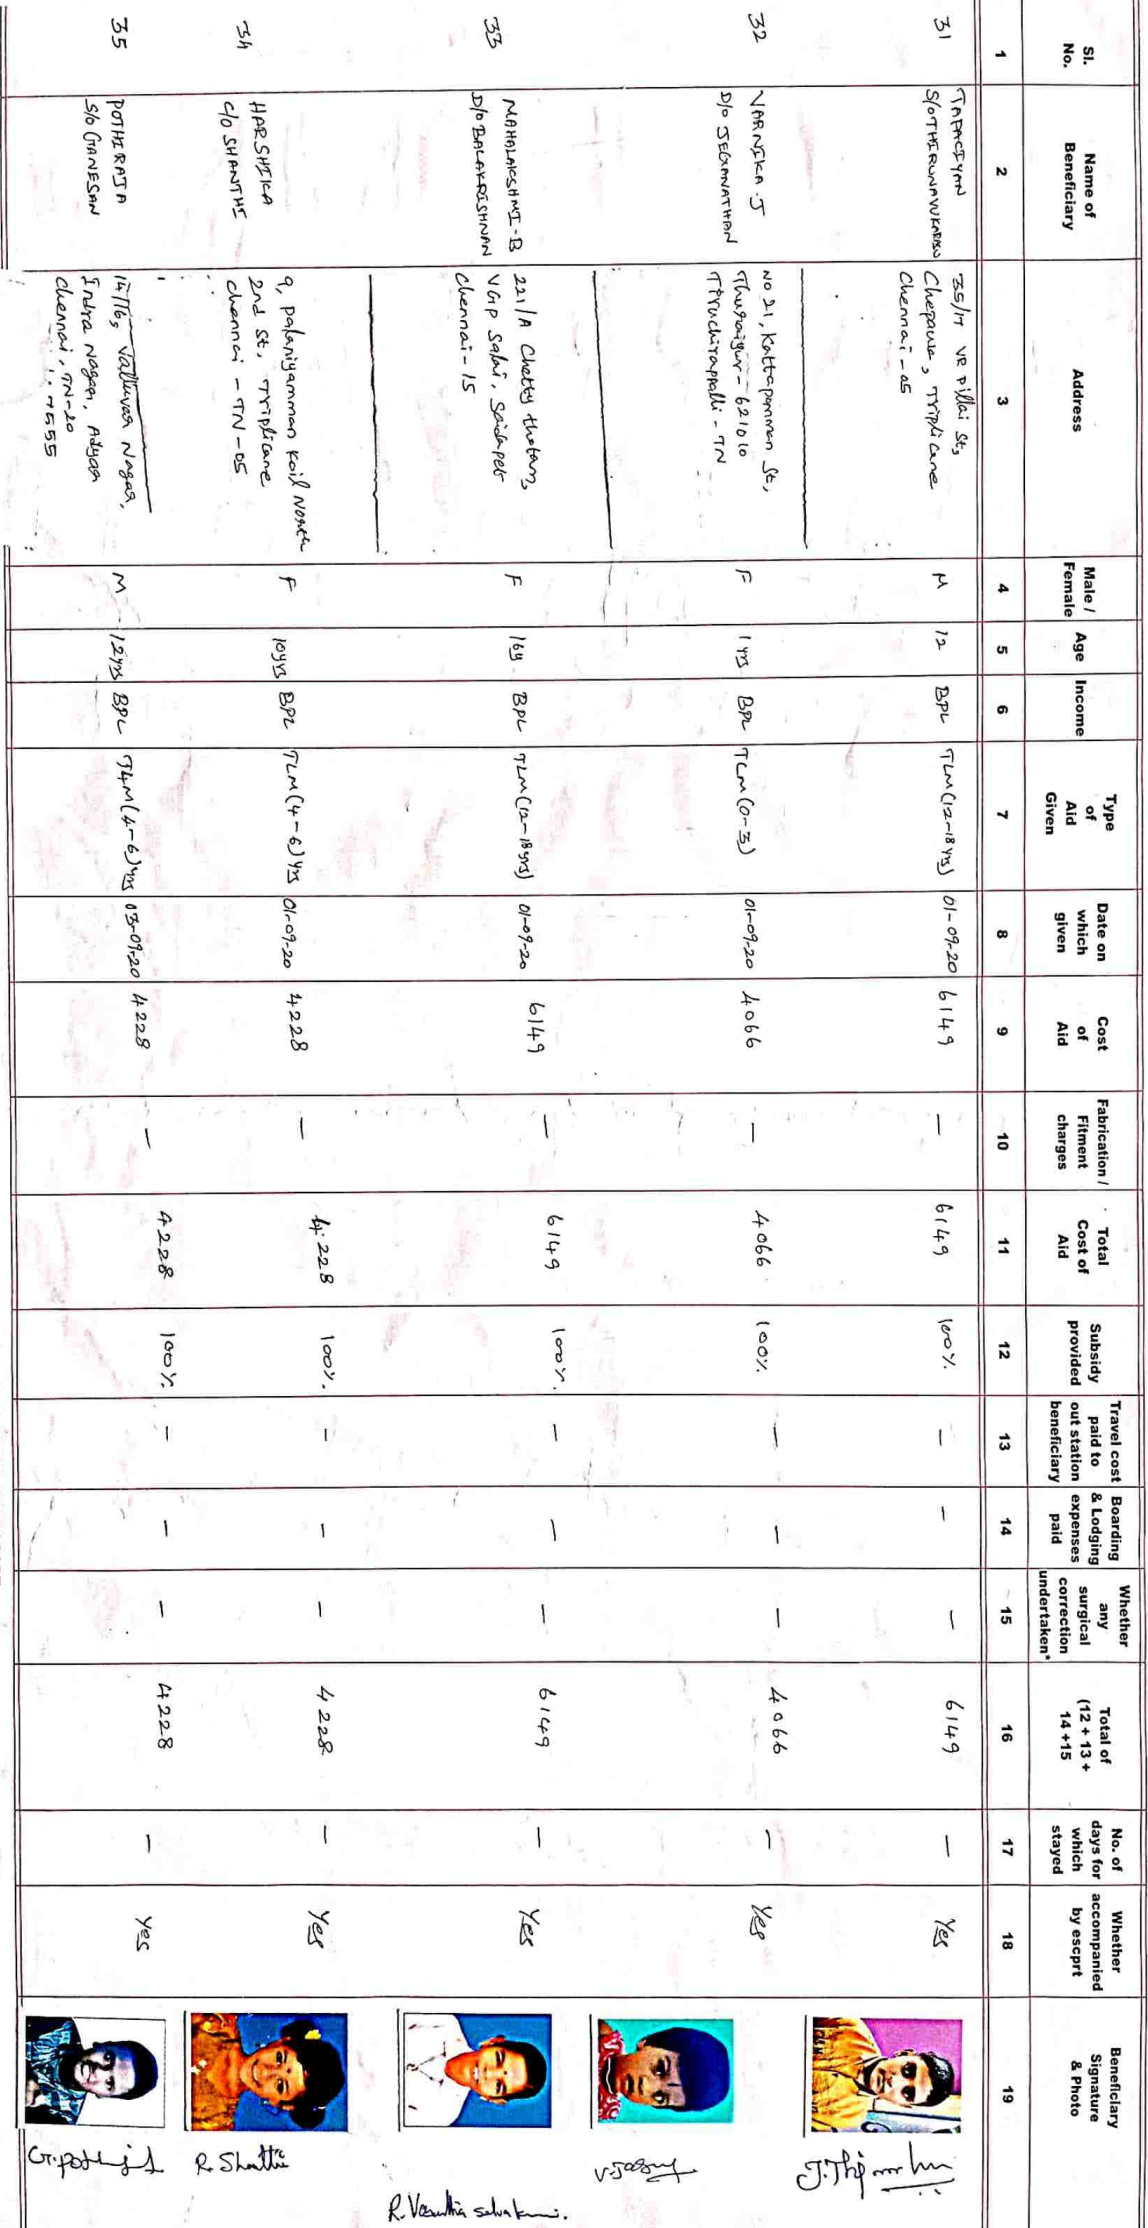 Sl. No.
Name of Beneficiary
Address
Male / Female
Age
Income
Type of Aid Given
Date on which given
Cost of Aid
Fabrication / Fitment charges
Total Cost of Aid
Subsidy provided
Travel cost paid to out station beneficiary
Boarding & Lodging expenses paid
Whether any surgical correction undertaken*
Total of (12 + 13 + 14 +15
No. of days for which stayed
Whether accompanied by escprt
Beneficiary Signature & Photo
1 2 3 4 5 6 7 8 9 10 11 12 13 14 15 16 17 18 19
31
S/o THIRUNAVUKARASU
35/17 VR Pillai St,
Chepauk, Triplicane
Chennai - 05
M 12 BPL TLM (12-18 yrs) 01-09-20 6149 — 6149 100% — — — 6149 — Yes
32
VARNIKA . J
D/o JEGANATHAN
NO 21, Kattapomman St,
Thuraiyur - 621010
Tiruchirappalli - TN
F 1 yrs BPL TLM (0-3) 01-09-20 4066 — 4066 100% — — — 4066 — Yes
33
MAHALAKSHMI - B
D/o BALAKRISHNAN
221/A Chetty thotam,
VGP Salai, Saidapet
Chennai - 15
F 16y. BPL TLM (12-18yrs) 01-09-20 6149 — 6149 100% — — — 6149 — Yes
R. Vasantha selvakumari.
34
HARSHIKA
C/o SHANTHI
9, Palaniyamman Koil North
2nd St, Triplicane
Chennai - TN - 05
F 10yrs BPL TLM (4-6) yrs 01-09-20 4228 — 4228 100% — — — 4228 — Yes
R. Shanthi
35
POTHIRAJA
S/o GANESAN
14/16, Valluvar Nagar,
Indra Nagar, Adyar
Chennai, TN-20
7555
M 12yrs BPL TLM (4-6) yrs 03-09-20 4228 — 4228 100% — — — 4228 — Yes